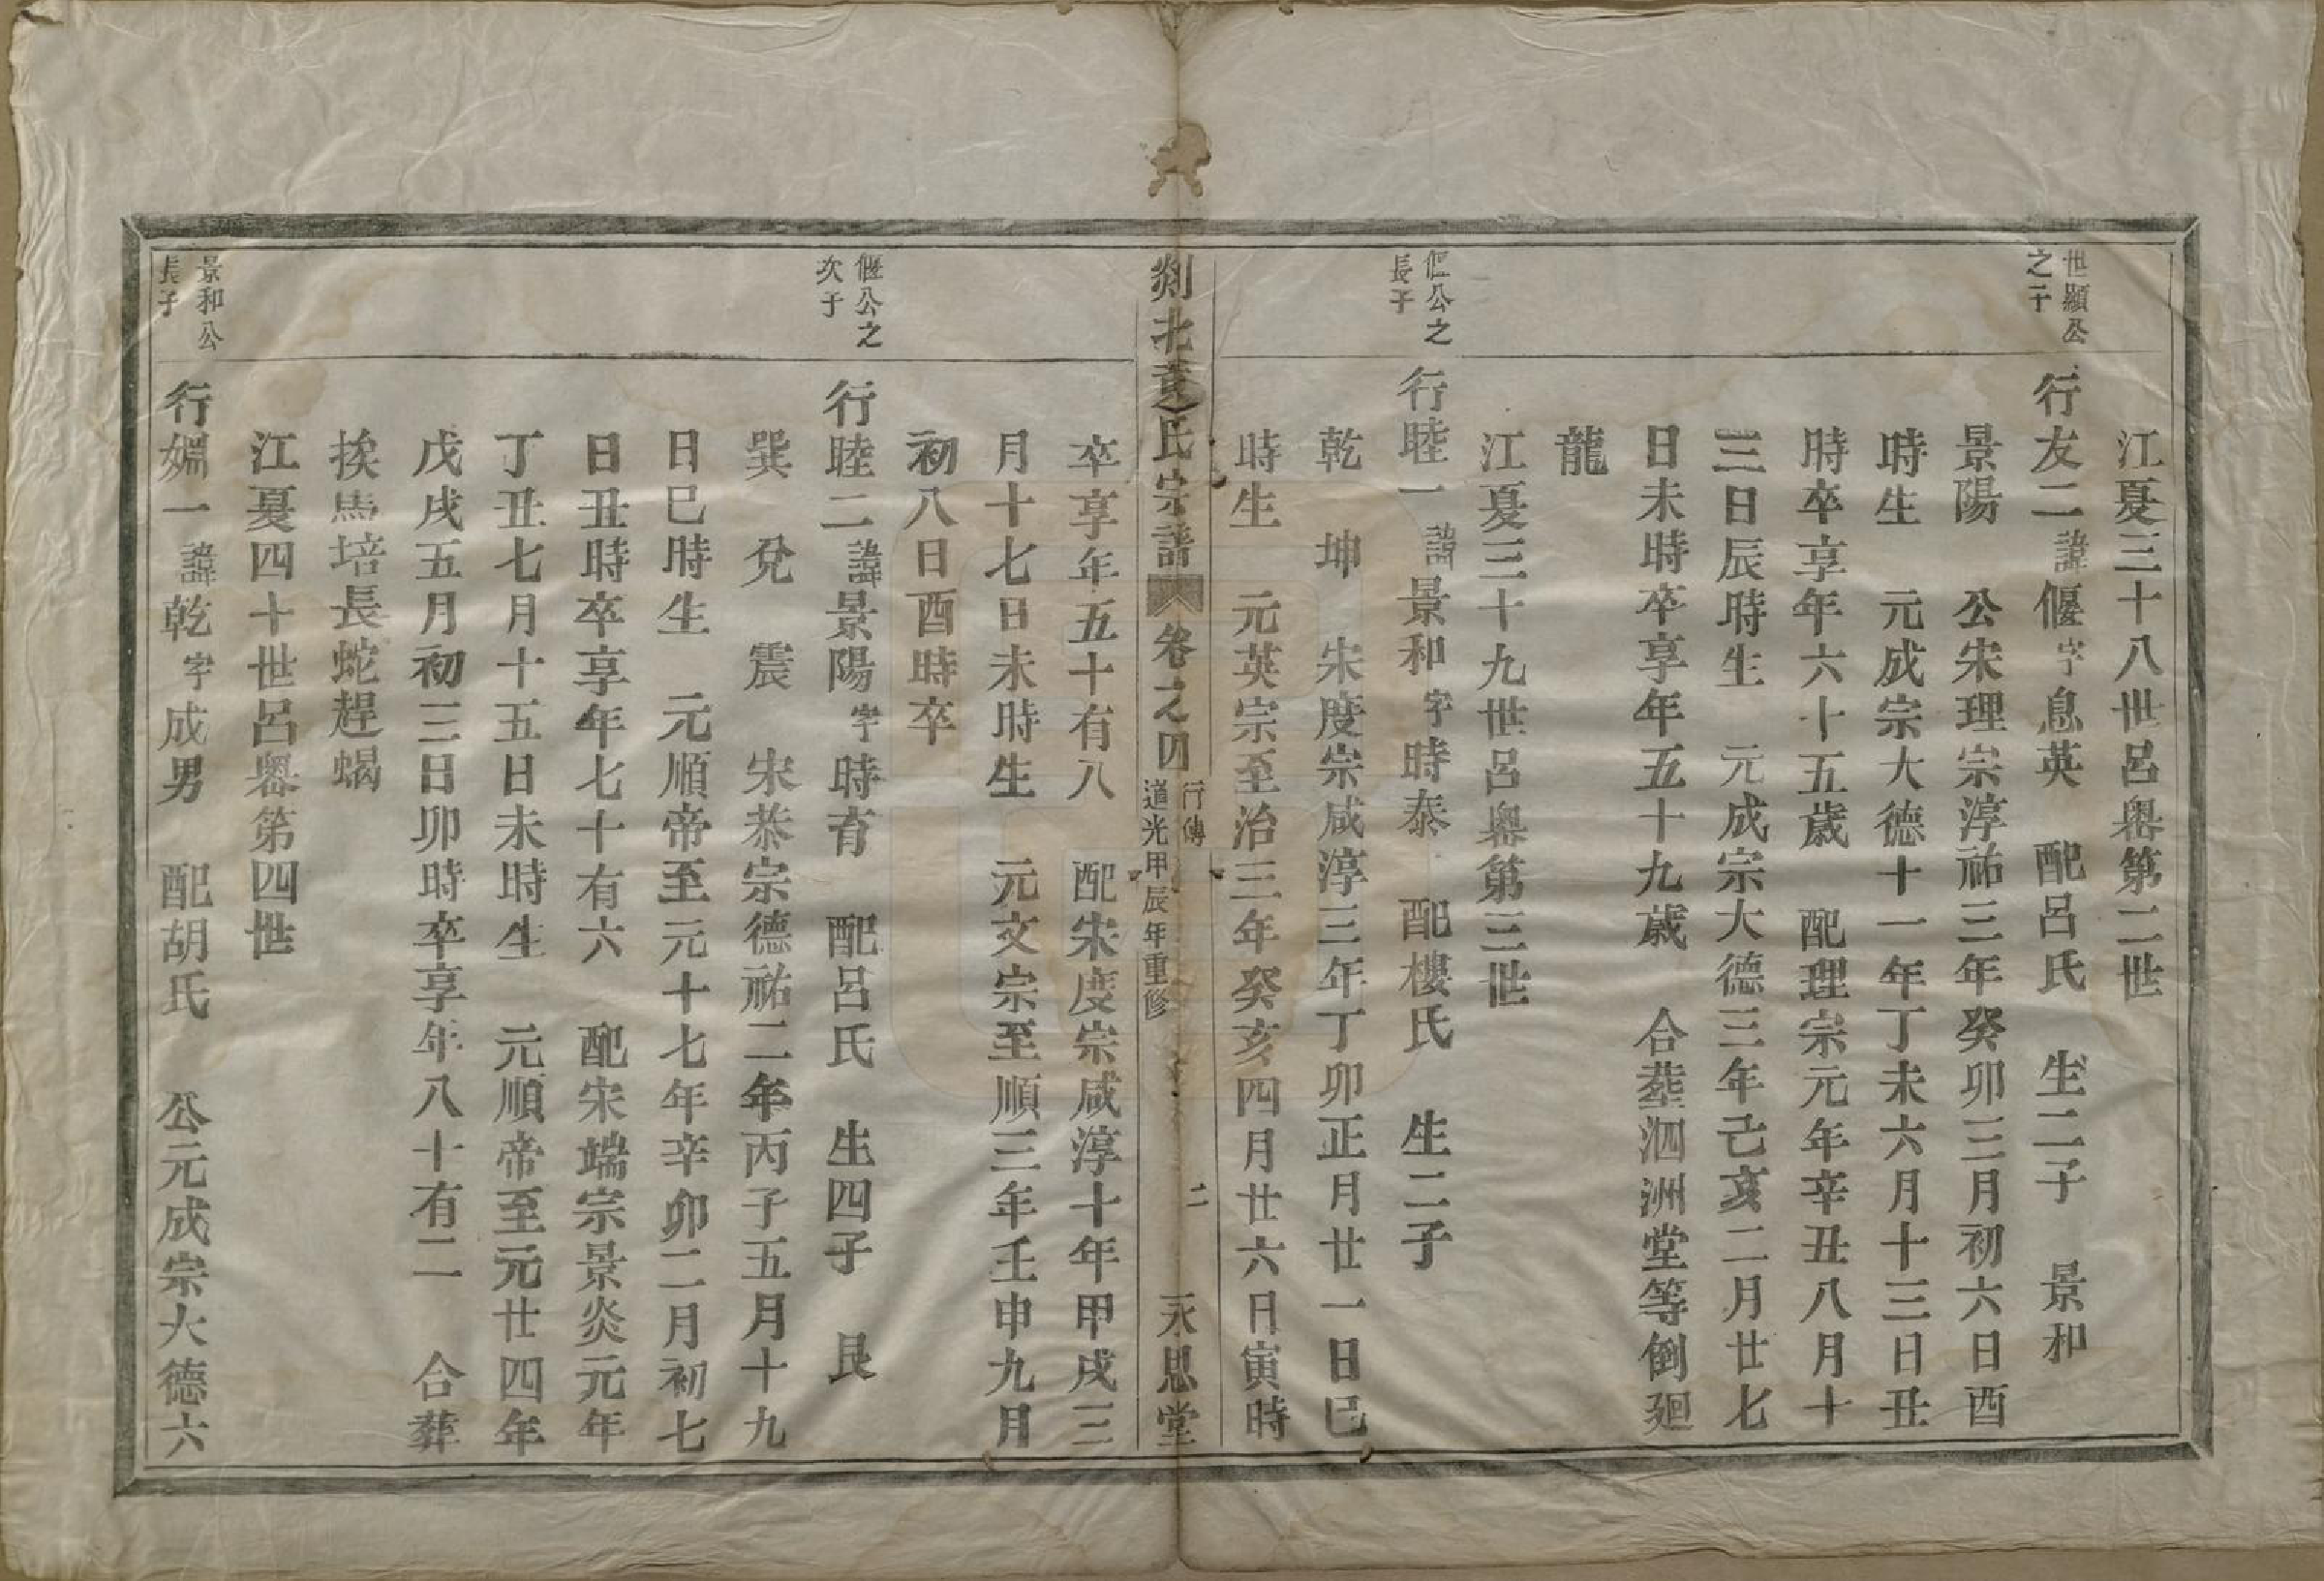 江夏三十八世呂嶴第二世
世顯公
之子
行友二諱偃字息英 配呂氏 生二子 景和
景陽 公宋理宗淳祐三年癸卯三月初六日酉
時生 元成宗大德十一年丁未六月十三日丑
時卒享年六十五歲 配理宗元年辛丑八月十
三日辰時生 元成宗大德三年己亥二月廿七
日未時卒享年五十九歲 合葬泗洲堂等倒廻
龍
江夏三十九世呂嶴第三世
偃公之
長子
行睦一諱景和字時泰 配樓氏 生二子
乾 坤 宋度宗咸淳三年丁卯正月廿一日巳
時生 元英宗至治三年癸亥四月廿六日寅時
剡北黃氏宗譜 卷之四 行傳 道光甲辰年重修 二 永思堂
卒享年五十有八 配宋度宗咸淳十年甲戌三
月十七日未時生 元文宗至順三年壬申九月
初八日酉時卒
偃公之
次子
行睦二諱景陽字時育 配呂氏 生四子 艮
巽 兌 震 宋恭宗德祐二年丙子五月十九
日巳時生 元順帝至元十七年辛卯二月初七
日丑時卒享年七十有六 配宋端宗景炎元年
丁丑七月十五日未時生 元順帝至元廿四年
戊戌五月初三日卯時卒享年八十有二 合葬
挨馬培長蛇趕蝎
江夏四十世呂嶴第四世
景和公
長子
行婣一諱乾字成男 配胡氏 公元成宗大德六